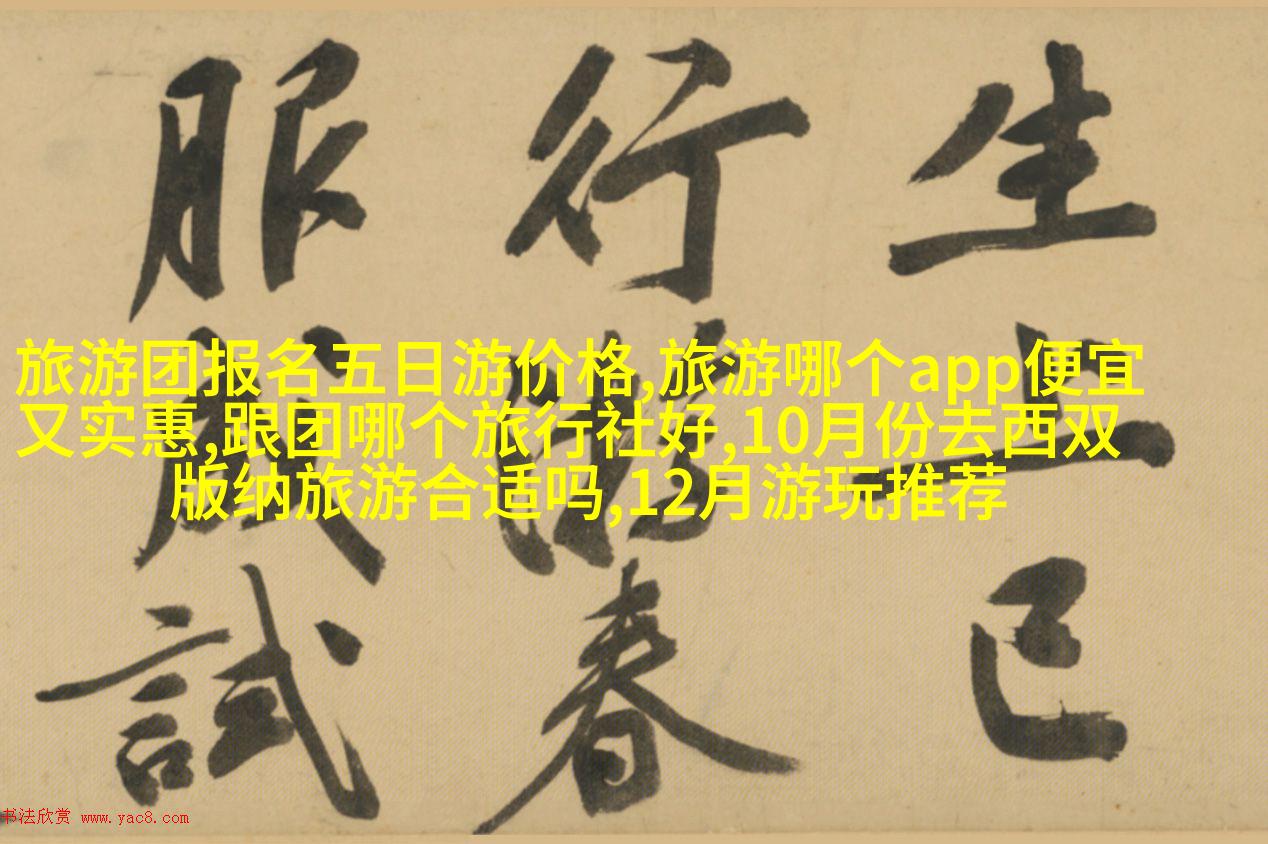 生上巳
行春
服成試
旅游团报名五日游价格,旅游哪个app便宜
又实惠,跟团哪个旅行社好,10月份去西双
版纳旅游合适吗,12月游玩推荐
书法欣赏 www.yac8.com